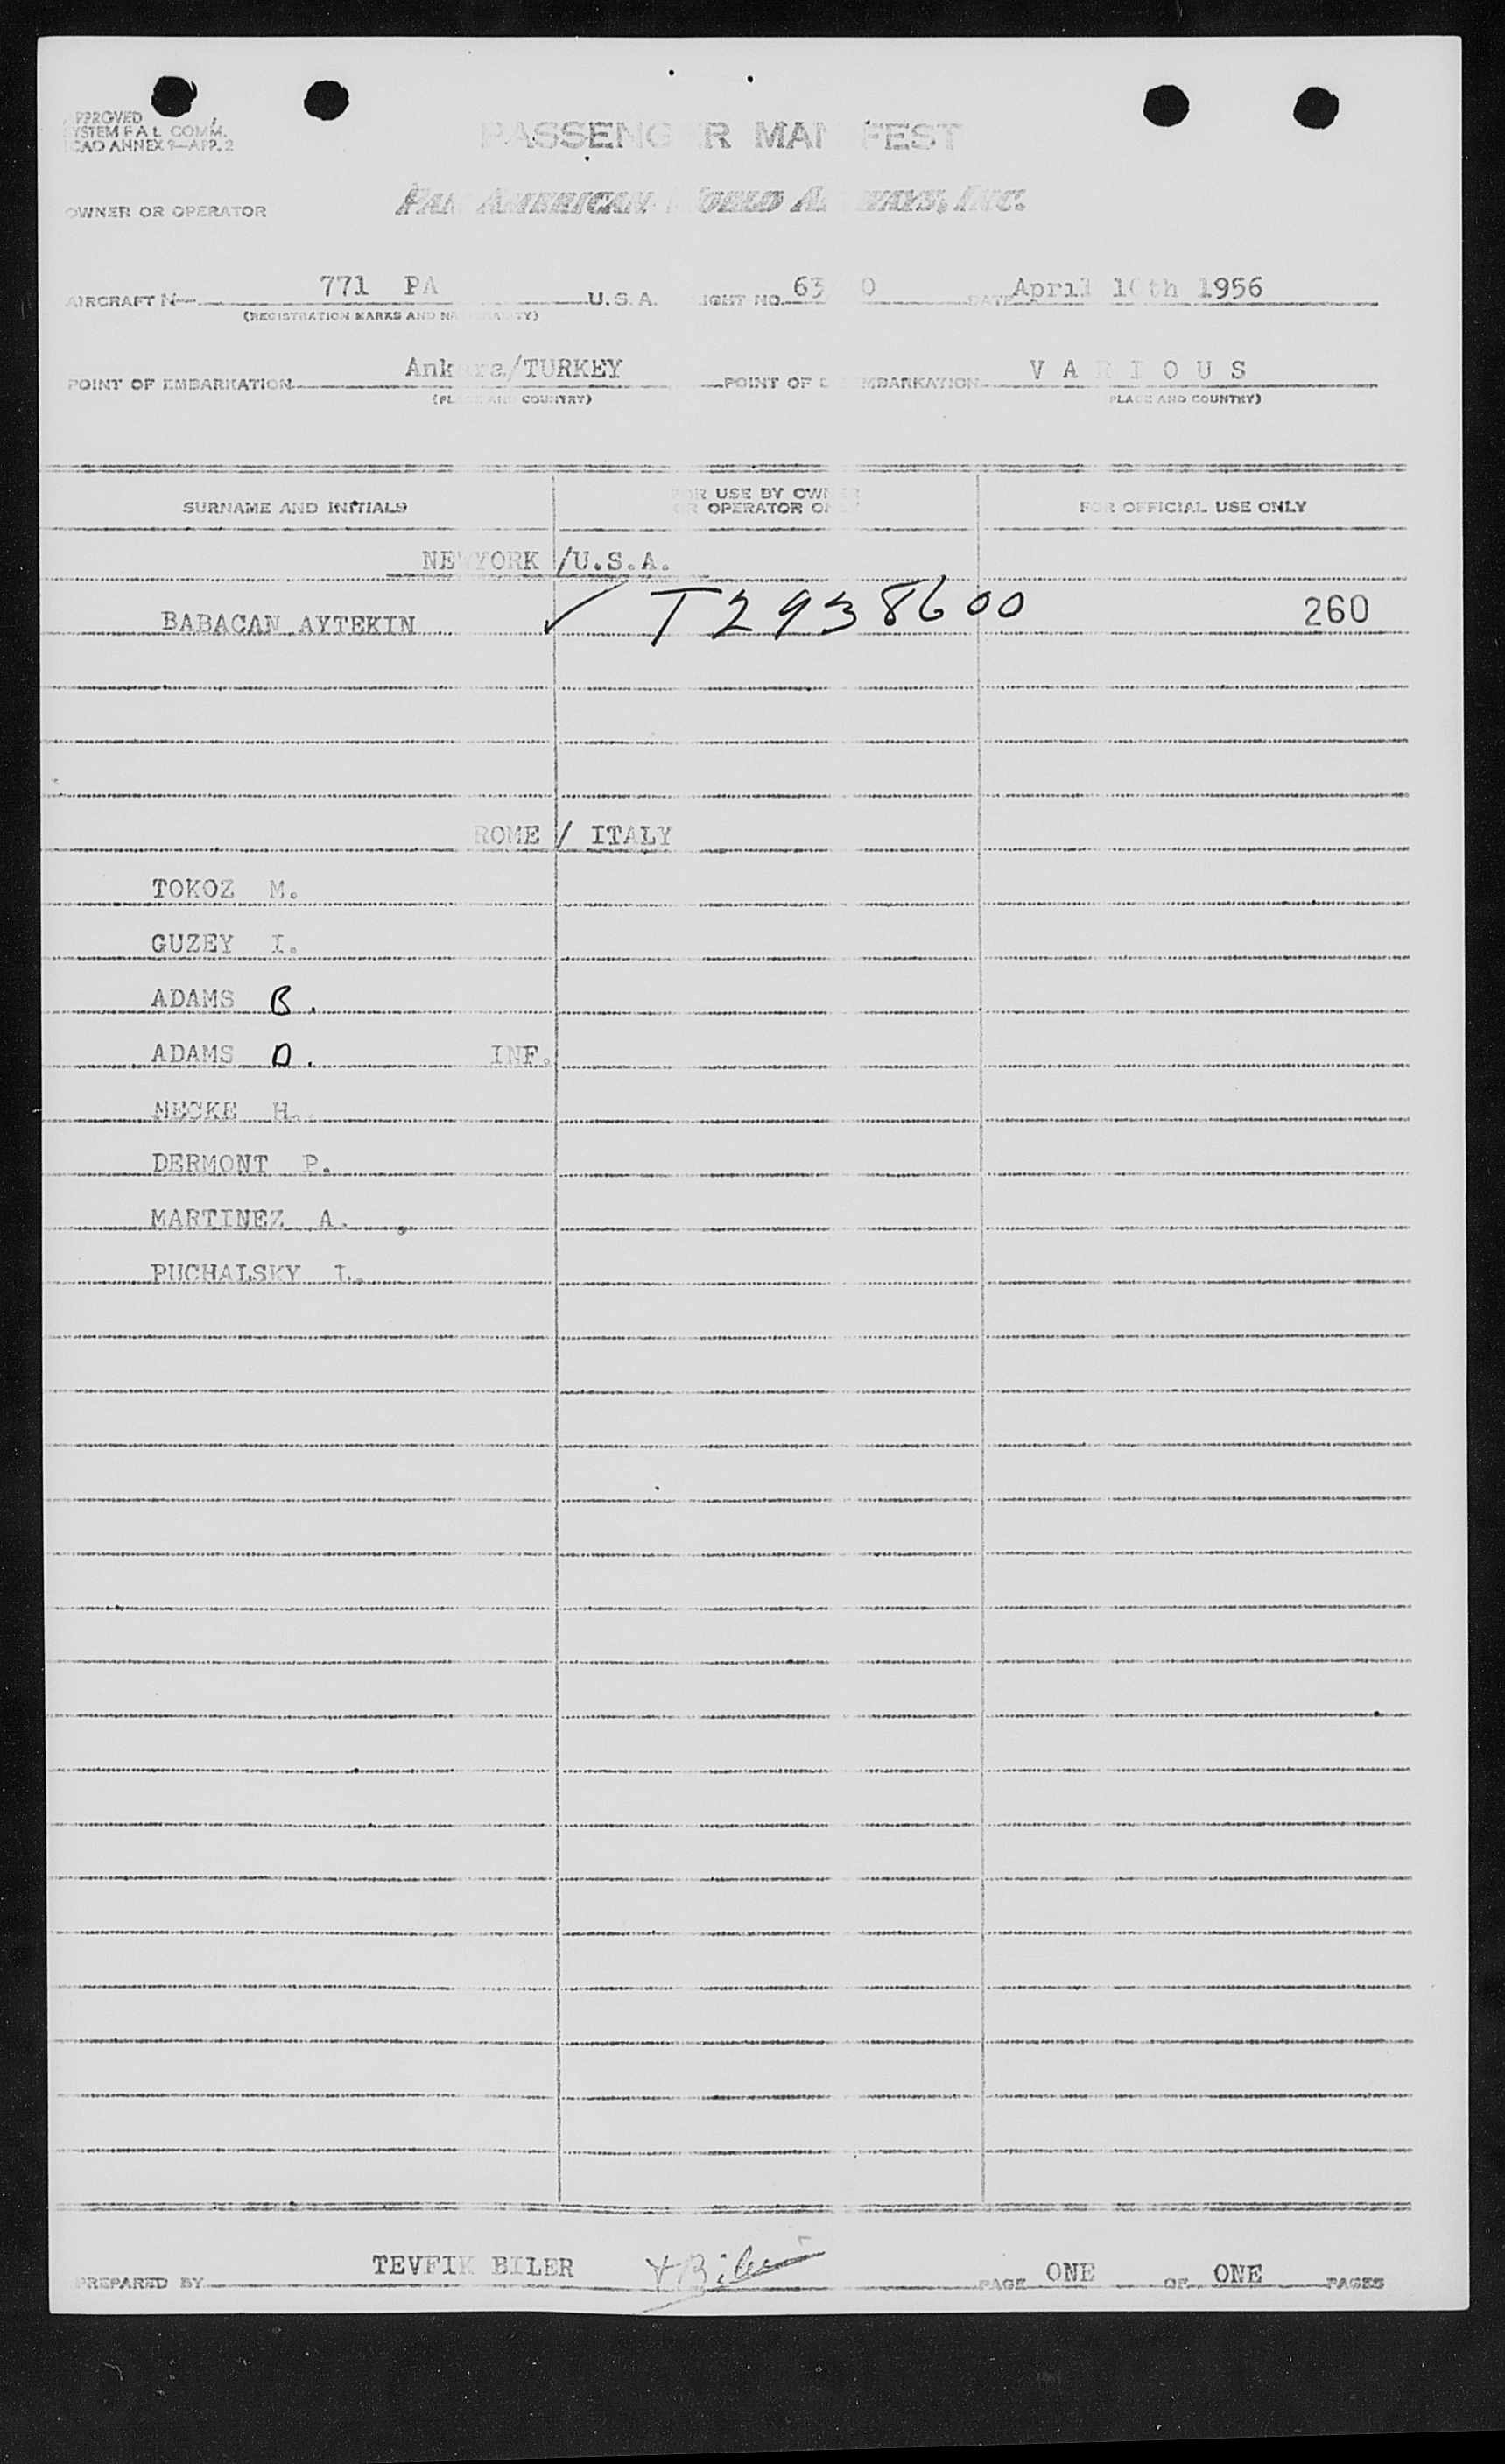 APPROVED
SYSTEM FAL COMM.
ICAO ANNEX 9—APP. 2
PASSENGER MANIFEST
OWNER OR OPERATOR PAN AMERICAN WORLD AIRWAYS, INC.
AIRCRAFT N— 771 PA U.S.A. IGHT NO. 63 0 DATE April 10th 1956
(REGISTRATION MARKS AND NATIONALITY)
POINT OF EMBARKATION Ankara/TURKEY POINT OF DISEMBARKATION V A R I O U S
(PLACE AND COUNTRY) PLACE AND COUNTRY)
SURNAME AND INITIALS FOR USE BY OWNER OR OPERATOR ONLY FOR OFFICIAL USE ONLY
NEWYORK /U.S.A.
BABACAN AYTEKIN ✓ T2938600 260
ROME / ITALY
TOKOZ M.
GUZEY I.
ADAMS B.
ADAMS D. INF.
NECKE H.
DERMONT P.
MARTINEZ A.
PUCHALSKY L.
PREPARED BY TEVFIK BILER TBiler PAGE ONE OF ONE PAGES